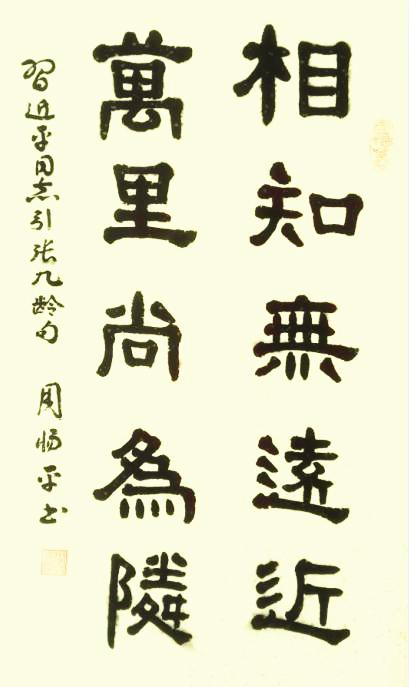 相知無遠近
萬里尚為隣
習近平同志引张九龄句 周 平书